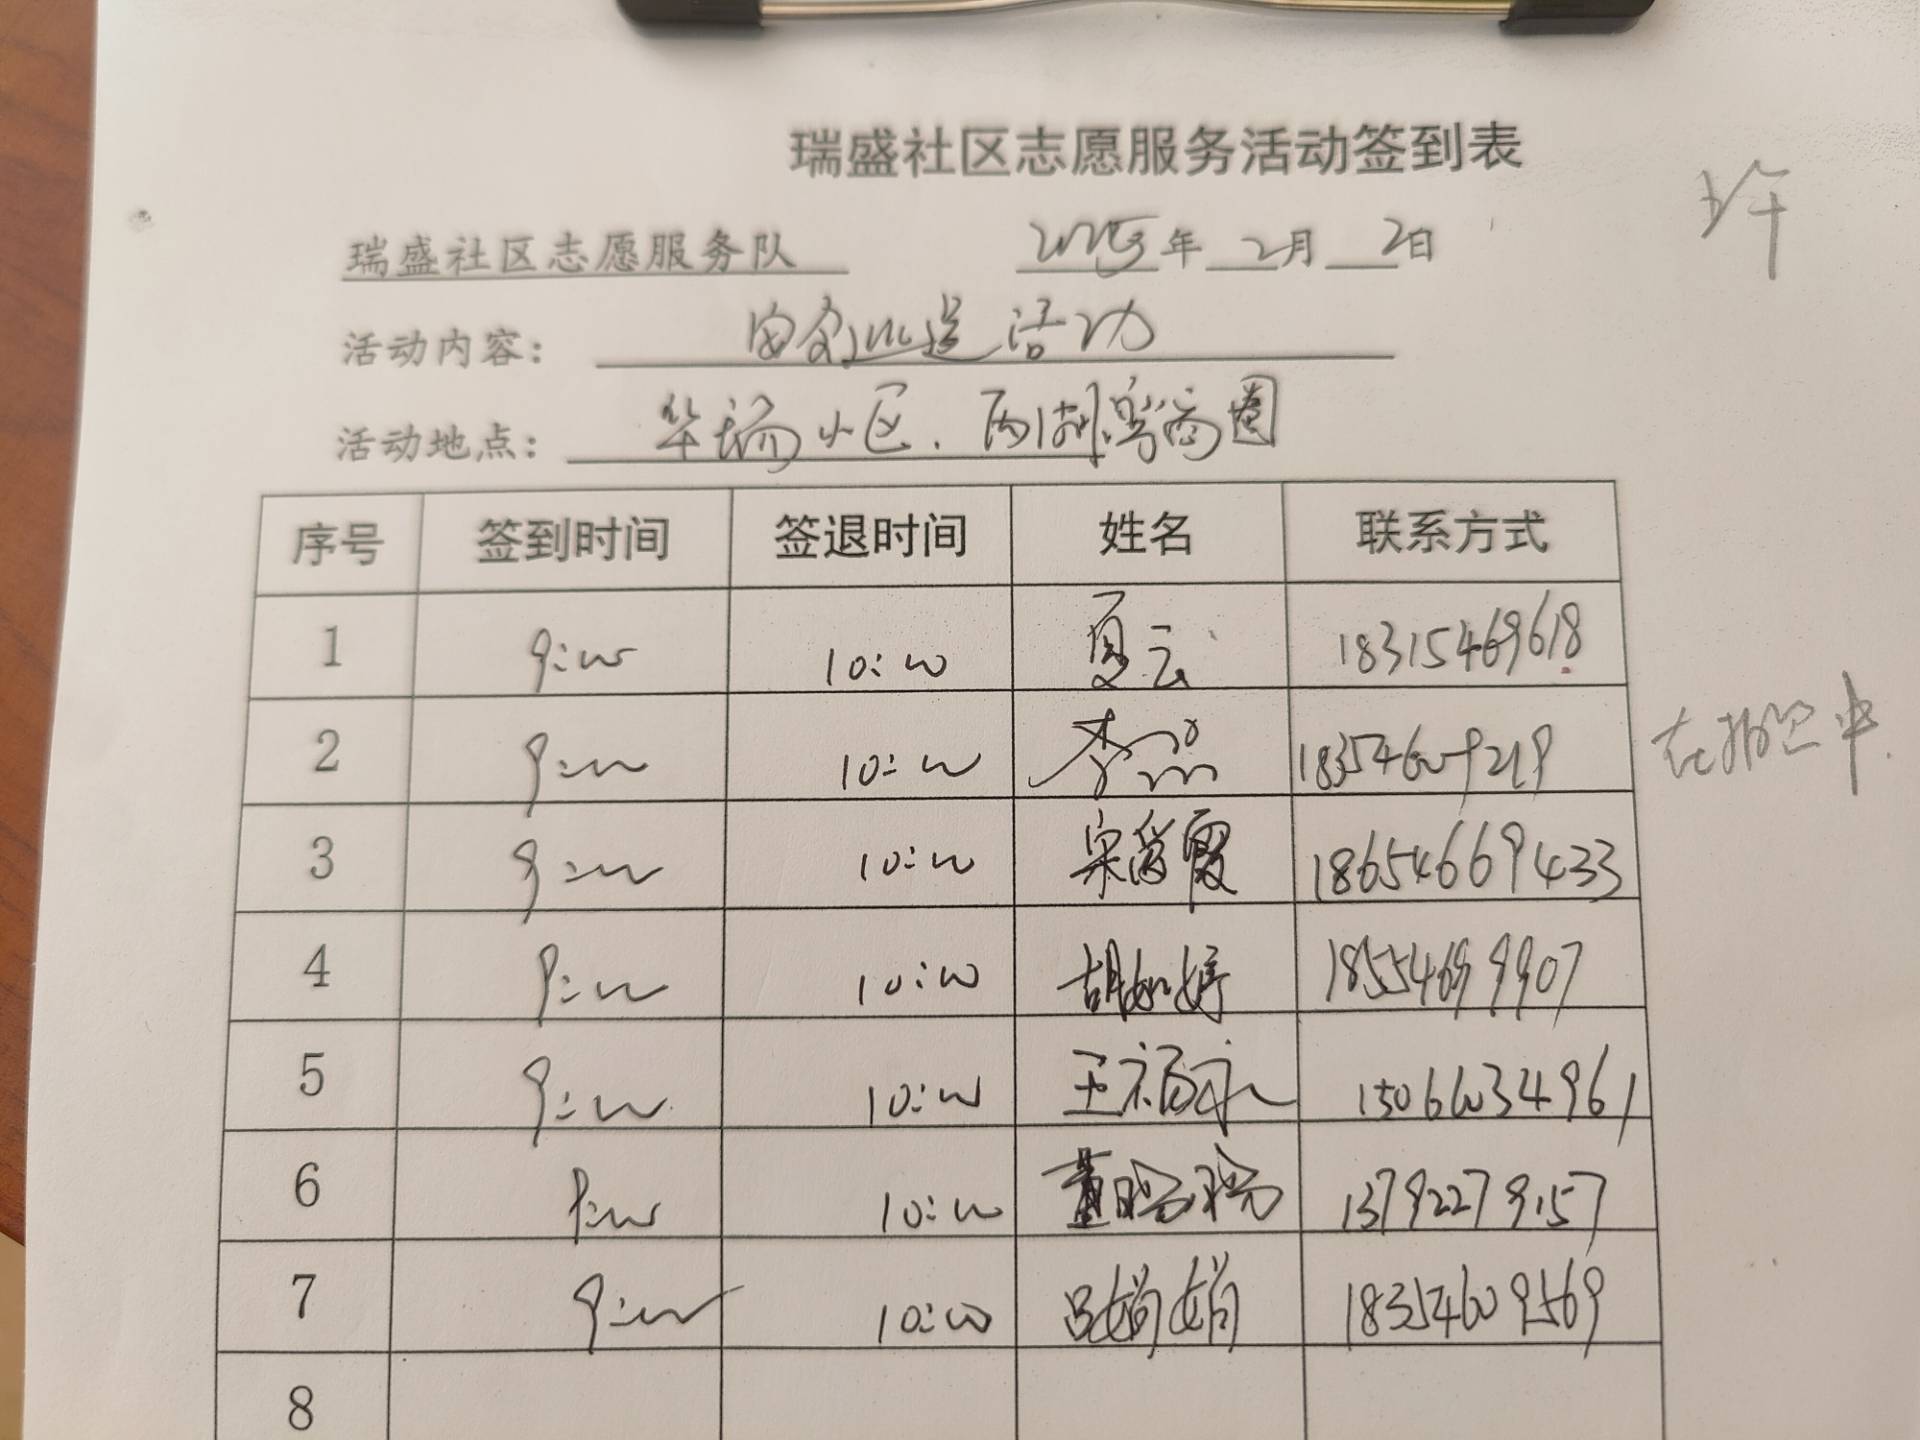 瑞盛社区志愿服务活动签到表
上午
瑞盛社区志愿服务队 年 2月 2日
活动内容: 活动
活动地点: 华瑞小区、西湖湾商圈
序号 签到时间 签退时间 姓名 联系方式
1 9:00 10:00 夏云 18315469618
2 9:00 10:00 李 18354609219
在 中
3 9:00 10:00 宋 霞 18654669433
4 9:00 10:00 胡如婷 18554699907
5 9:00 10:00 王福永 15066034961
6 9:00 10:00 董 13792279157
7 9:00 10:00 吕娟娟 18354609569
8